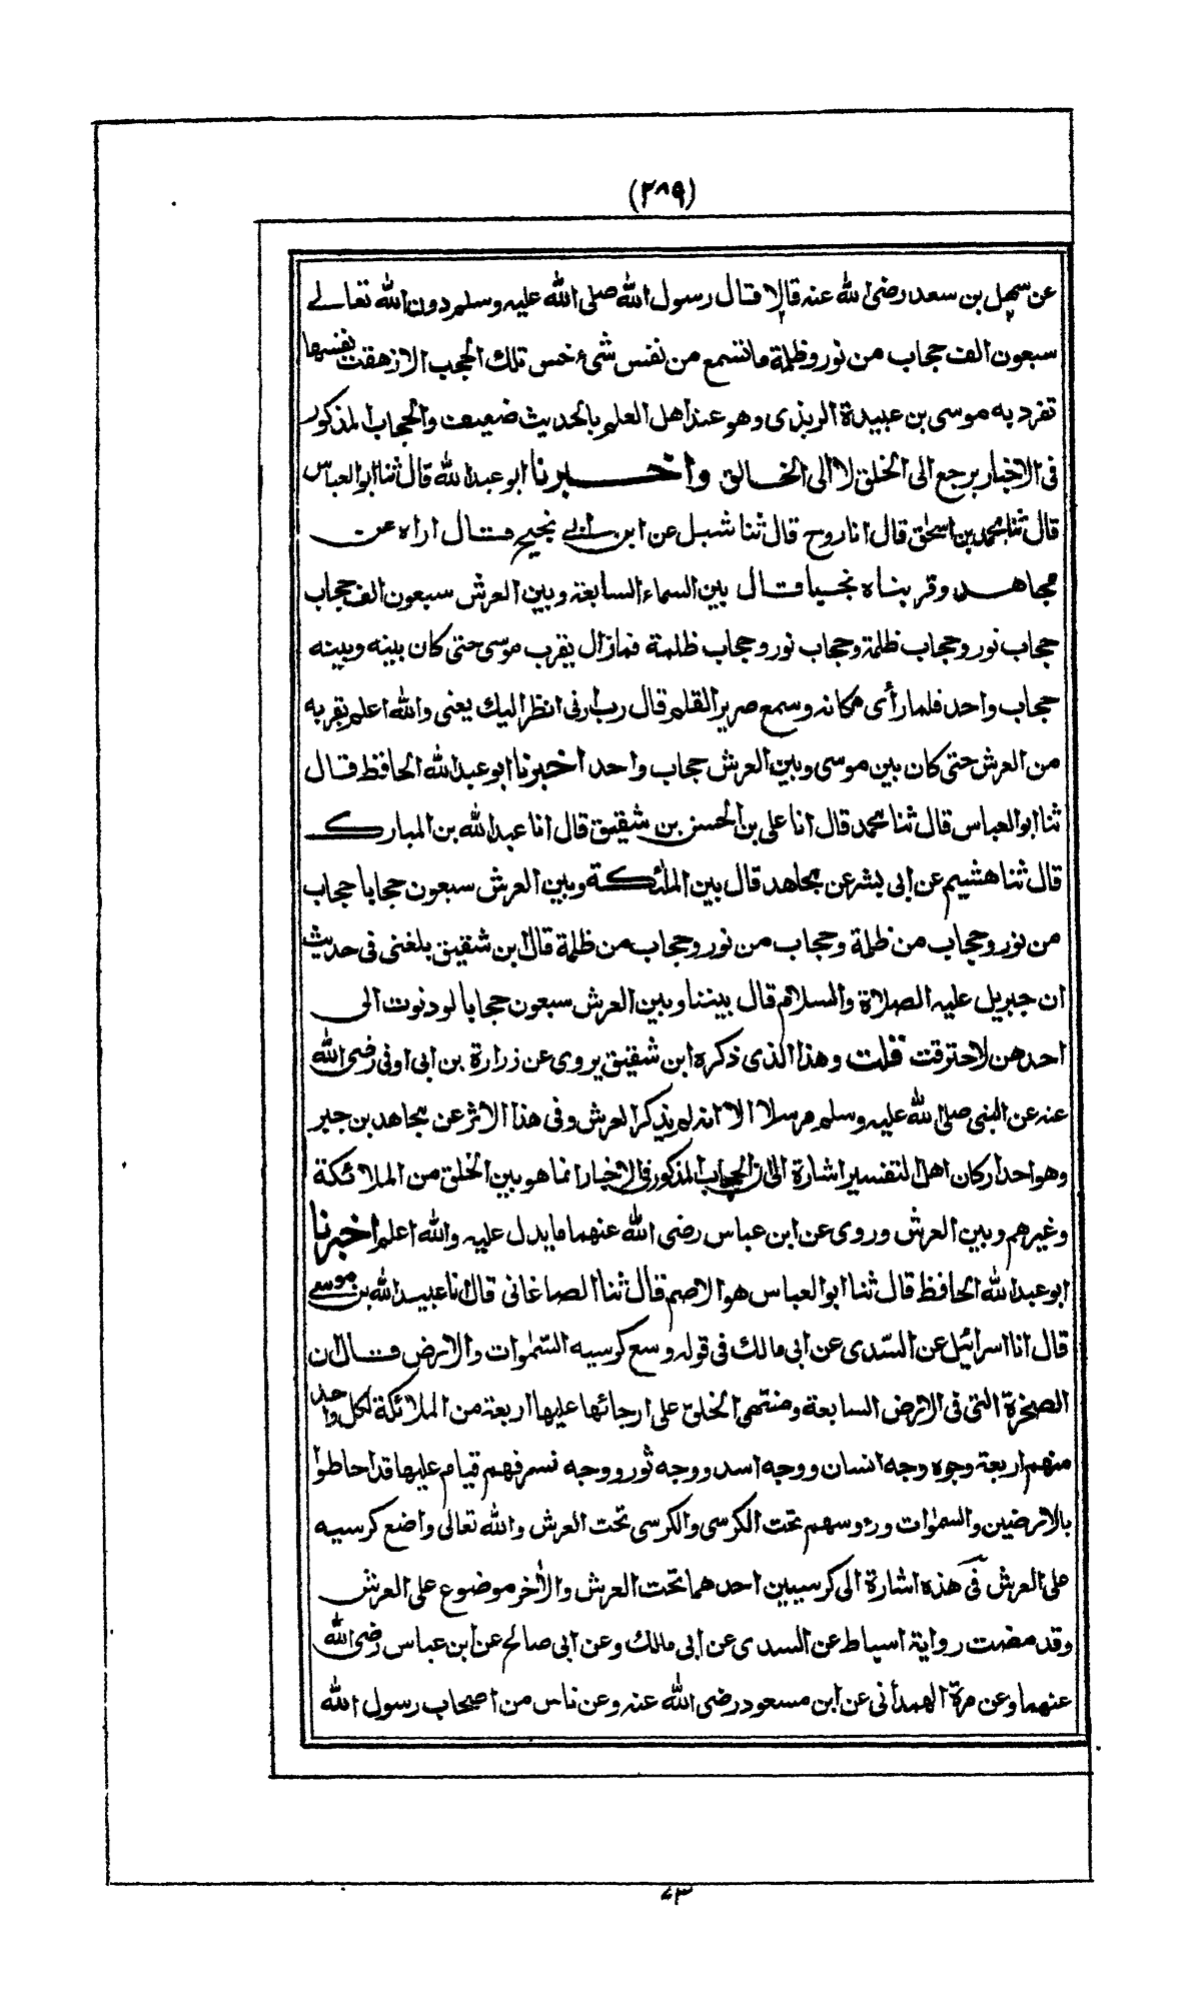 (٢٨٩)
عن سهل بن سعد رضى الله عنه قالا قال رسول الله صلى الله عليه وسلم دون الله تعالے
سبعون الف حجاب من نور وظلمة ما تسمع من نفس شئ خس تلك الحجب الا زهقت نفسها
تفرد به موسى بن عبيدة الربذى وهو عند اهل العلم بالحديث ضعيف والحجاب المذكور
فى الاخبار يرجع الى الخلق لا الى الخالق واخبرنا ابو عبد الله قال ثنا ابو العباس
قال ثنا محمد بن اسحٰق قال انا روح قال ثنا شبل عن ابن ابى نجيح قال اراه عن
مجاهد وقربناه نجيا قال بين السماء السابعة وبين العرش سبعون الف حجاب
حجاب نور وحجاب ظلمة وحجاب نور وحجاب ظلمة فمازال يقرب موسى حتى كان بينه وبينه
حجاب واحد فلما رأى مكانه وسمع صرير القلم قال رب ارنى انظر اليك يعنى والله اعلم يقربه
من العرش حتى كان بين موسى وبين العرش حجاب واحد اخبرنا ابو عبد الله الحافظ قال
ثنا ابو العباس قال ثنا محمد قال انا على بن الحسن بن شقيق قال انا عبد الله بن المبارك
قال ثنا هشيم عن ابى بشر عن مجاهد قال بين الملئكة وبين العرش سبعون حجابا حجاب
من نور وحجاب من ظلمة وحجاب من نور وحجاب من ظلمة قال ابن شقيق بلغنى فى حديث
ان جبريل عليه الصلاة والسلام قال بيننا وبين العرش سبعون حجابا لو دنوت الى
احدهن لاحترقت قلت وهذا الذى ذكره ابن شقيق يروى عن زرارة بن ابى اوفى رضى الله
عنه عن النبى صلى الله عليه وسلم مرسلا الا انه لم يذكر العرش وفى هذا الاثر عن مجاهد بن جبر
وهو احد اركان اهل التفسير اشارة الى ان الحجاب المذكور فى الاخبار انما هو بين الخلق من الملائكة
وغيرهم وبين العرش وروى عن ابن عباس رضى الله عنهما ما يدل عليه والله اعلم اخبرنا
ابو عبد الله الحافظ قال ثنا ابو العباس هو الاصم قال ثنا الصاغانى قال انا عبيد الله بن موسے
قال انا اسرائيل عن السّدى عن ابى مالك فى قوله وسع كرسيه السّمٰوات والارض قال ان
الصخرة التى فى الارض السابعة ومنتهى الخلق على ارجائها عليها اربعة من الملائكة لكل واحد
منهم اربعة وجوه وجه انسان ووجه اسد ووجه ثور ووجه نسر فهم قيام عليها قد احاطوا
بالارضين والسمٰوات ورءوسهم تحت الكرسى والكرسى تحت العرش والله تعالى واضع كرسيه
على العرش فى هذه اشارة الى كرسيين احدهما تحت العرش والاٰخر موضوع على العرش
وقد مضت رواية اسباط عن السدى عن ابى مالك وعن ابى صالح عن ابن عباس رضى الله
عنهما وعن مرة الهمدانى عن ابن مسعود رضى الله عنه وعن ناس من اصحاب رسول الله